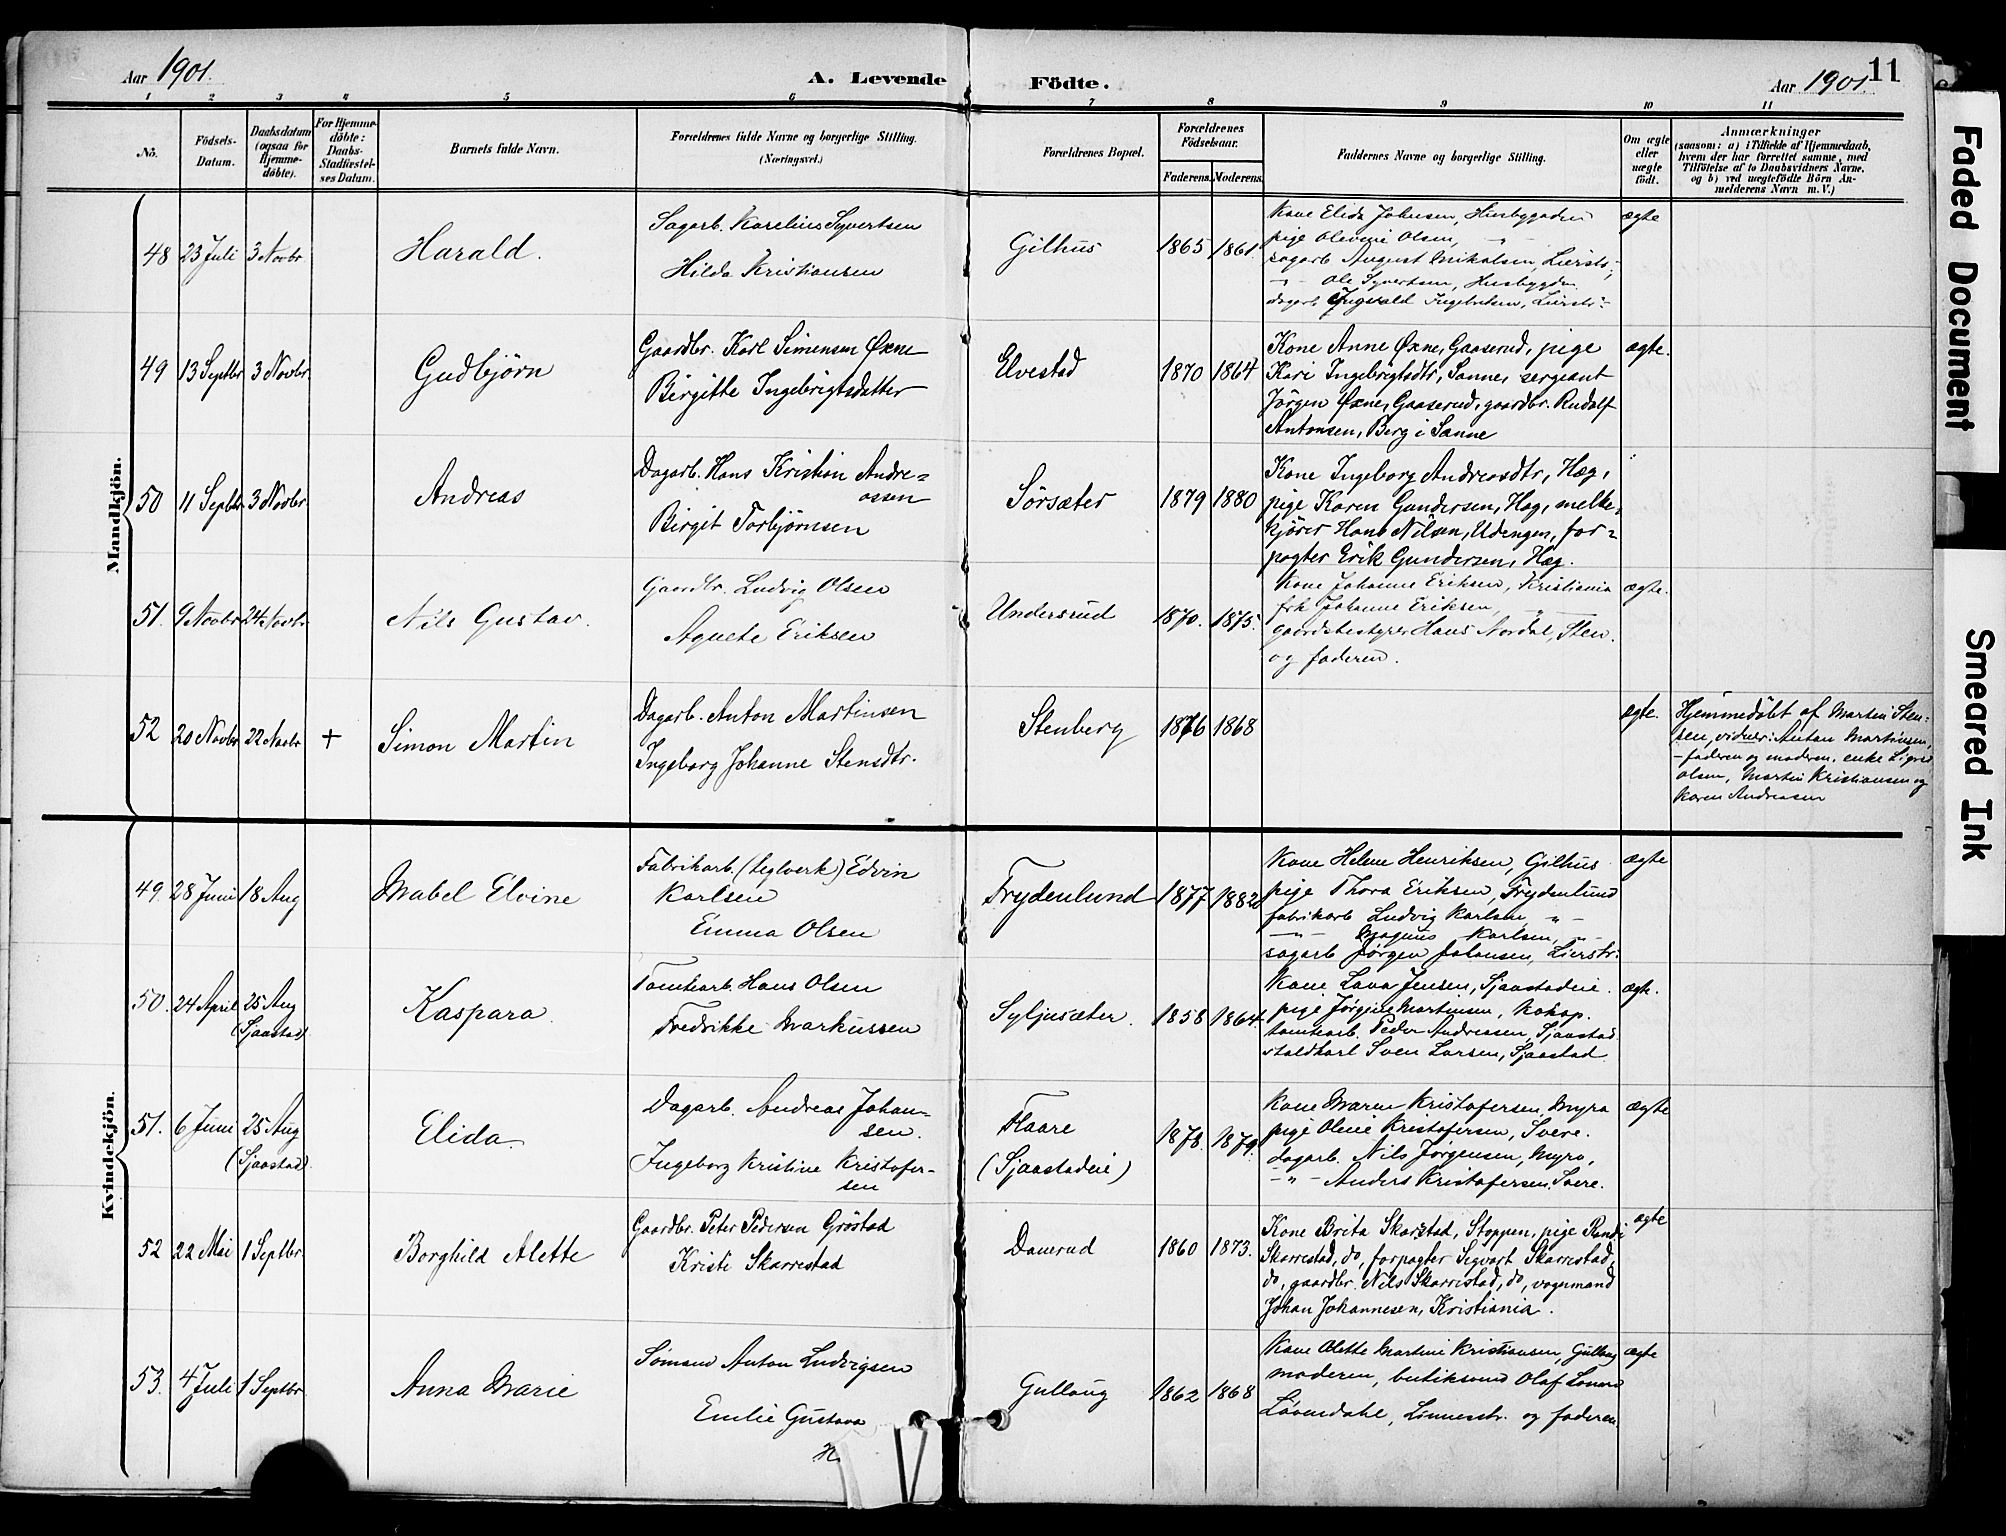 Aar 1901. A. Levende Födte. Aar 1901. 11
1 2 3 4 5 6 7 8 9 10 11
No. Födsels-Datum. Daabsdatum (ogsaa for Hjemme-döbte). For Hjemme-döbte: Daabs-Stadfæstel-ses Datum. Barnets fulde Navn. Forældrenes fulde Navne og borgerlige Stilling. (Næringsvei.) Forældrenes Bopæl. Forældrenes Födselsaar. Faderens. Moderens. Faddernes Navne og borgerlige Stilling. Om ægte eller uægte födt. Anmærkninger (saasom: a) i Tilfælde af Hjemmedaab, hvem der har forrettet samme, med Tilföielse af to Daabsvidners Navne, og b) ved uægtefödte Börn An-melderens Navn m. V.)
Mandkjön.
48 23 Juli 3 Novbr Harald. Sagarb. Karelius Syvertsen
Hilda Kristiansen
Gilhus 1865 1861. Kone Elida Johnsen, Husbygdeie ægte
pige Olevine Olsen, — " —
sagarb August Mikalsen, Lierstr.,
— " — Ole Syvertsen, Husbygden
dagarb. Ingvald Ingebretsen, Lierstr.
49 13 Septbr 3 Novbr. Gudbjørn Gaardbr. Karl Simensen Øxne
Birgitte Ingebrigtsdatter
Elvestad 1870 1864 Kone Anne Øxne, Gaaserud, pige ægte.
Kari Ingebrigtsdtr, Sanne, sergeant
Jörgen Øxne, Gaaserud, gaardbr. Rudolf
Antonsen, Berg i Sanne
50 11 Septbr 3 Novbr. Andreas Dagarb. Hans Kristian Andre=
assen
Birgit Torbjørnsen
Sörsæter 1879 1880 Kone Ingeborg Andreasdtr, Hæg,
pige Karen Gundersen, Hæg, melke-
kjörer Hans Nilsen, Udengen, for=
pagter Erik Gundersen, Hæg.
51. 9 Novbr 24 Novbr. Nils Gustav. Gaardbr. Ludvig Olsen
Agnete Eriksen
Undersrud 1870. 1875. Kone Johanne Eriksen, Kristiania ægte.
frk Johanne Eriksen, — " —
gaardsbestyrer Hans Nordal, Sten.
og faderen.
52 20 Novbr 22 Novbr + Simon Martin Dagarb. Anton Martinsen
Ingeborg Johanne Stensdtr.
Stenberg 1876 1868 ægte. Hjemmedöbt af Marten Sten=
sen, vidner: Anton Martinsen,
-faderen og moderen. enke
Olsen, Martin Kristiansen og
Karen Andreasen
Kvindekjön.
49. 28 Juni 18 Aug Mabel Elvine Fabrikarb. (teglverk) Edvin
Karlsen
Emma Olsen
Frydenlund 1877 1882 Kone Helene Henriksen, Gilhus ægte
pige Thora Eriksen, Frydenlund
fabrikarb Ludvig Karlsen — " —
— " — Magnus Karlsen, — " —
sagarb Jörgen Johansen, Lierstr.
50. 24 April 25 Aug
(Sjaastad). Kaspara. Tomtearb. Hans Olsen
Fredrikke Markussen
Syljusæter. 1858 1864. Kone Lava Jensen, Sjaastadeie. ægte.
pige Jörgine Martinsen,
tomtearb. Peder Andreassen, Sjaastad
staldkarl Sven Larsen, Sjaastad
51. 6 Juni 25 Aug
(Sjaastad). Elida Dagarb. Andreas Johan-
sen.
Ingeborg Kristine Kristofer-
sen
Flaare
(Sjaastadeie)
1878. 1879. Kone Maren Kristofersen, Myra ægte
pige Oline Kristofersen, Svere.
dagarb. Nils Jörgensen, Myra,
— " — Anders Kristofersen, Svere.
52 22 Mai 1 Septbr. Borghild Alette Gaardbr. Peter Pedersen Gröstad
Kristi Skarrestad
Dauerud 1860 1873. Kone Brita Skarstad, Stoppen, pige Randi ægte
Skarrestad, do, forpagter Sigvart Skarrestad,
do, gaardbr. Nils Skarrestad, do, vognmand
Johan Johannesen, Kristiania.
53. 4 Juli 1 Septbr Anna Marie Sömand Anton Ludvigsen
Emilie Gustava
Gullaug 1862 1868 Kone Alette Martine Kristiansen, Gullaug ægte
moderen, Olaf
Lövendahl, Linnesstr. og faderen.
Faded Document
Smeared Ink